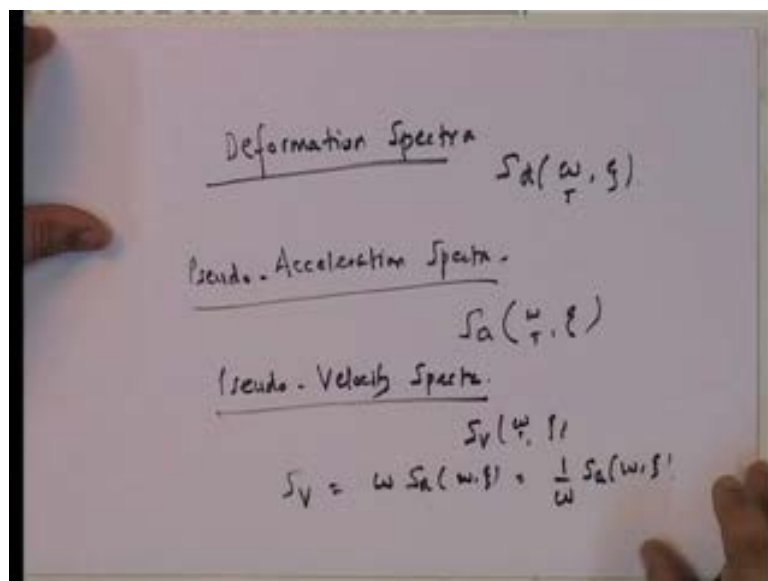 Deformation Spectra
Sd( ω/T , ξ)
Pseudo - Acceleration Spectra.
Sa( ω/T , ξ)
Pseudo - Velocity Spectra.
Sv( ω/T , ξ)
Sv = ω Sd(ω,ξ) = 1/ω Sa(ω,ξ)